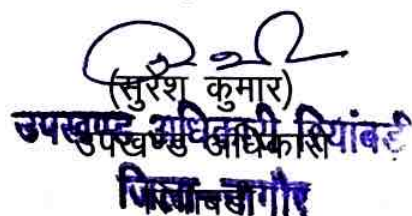 (सुरेश कुमार)
उपखण्ड अधिकारी रियांबडी
उपखण्ड अधिकारी
जिला नागौर